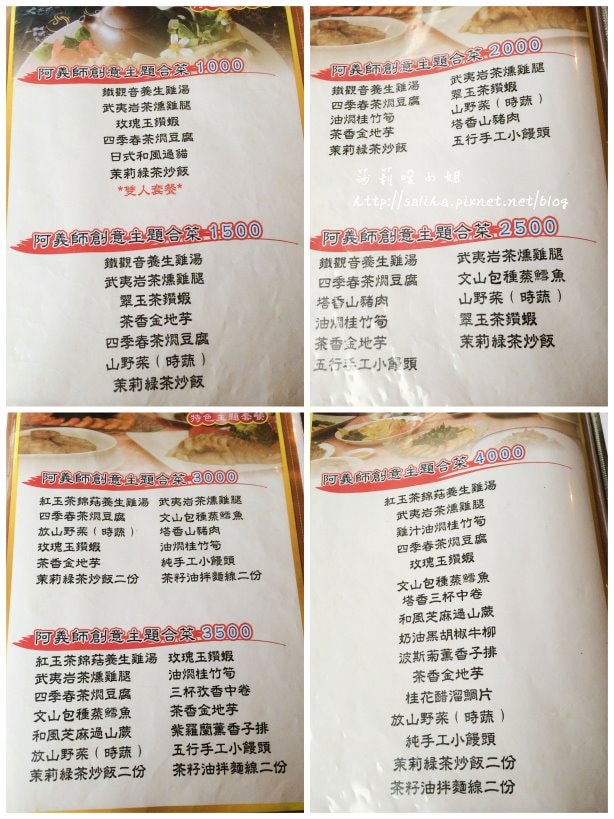 阿義師創意主題合菜 1000
鐵觀音養生雞湯
武夷岩茶燻雞腿
玫瑰玉鑽蝦
四季春茶燜豆腐
日式和風過貓
茉莉綠茶炒飯
*雙人套餐*
阿義師創意主題合菜 1500
鐵觀音養生雞湯
武夷岩茶燻雞腿
翠玉茶鑽蝦
茶香金地芋
四季春茶燜豆腐
山野菜（時蔬）
茉莉綠茶炒飯
阿義師創意主題合菜 2000
鐵觀音養生雞湯
四季春茶燜豆腐
油燜桂竹筍
茶香金地芋
茉莉綠茶炒飯
武夷岩茶燻雞腿
翠玉茶鑽蝦
山野菜（時蔬）
塔香山豬肉
五行手工小饅頭
莎莉哎小姐
http://salika.pixnet.net/blog
阿義師創意主題合菜 2500
鐵觀音養生雞湯
四季春茶燜豆腐
塔香山豬肉
油燜桂竹筍
茶香金地芋
五行手工小饅頭
武夷岩茶燻雞腿
文山包種蒸鱈魚
山野菜（時蔬）
翠玉茶鑽蝦
茉莉綠茶炒飯
特色主題套餐
阿義師創意主題合菜 3000
紅玉茶錦菇養生雞湯
四季春茶燜豆腐
放山野菜（時蔬）
玫瑰玉鑽蝦
茶香金地芋
茉莉綠茶炒飯二份
武夷岩茶燻雞腿
文山包種蒸鱈魚
塔香山豬肉
油燜桂竹筍
純手工小饅頭
茶籽油拌麵線二份
阿義師創意主題合菜 3500
紅玉茶錦菇養生雞湯
武夷岩茶燻雞腿
四季春茶燜豆腐
文山包種蒸鱈魚
和風芝麻過山蕨
放山野菜（時蔬）
茉莉綠茶炒飯二份
玫瑰玉鑽蝦
油燜桂竹筍
三杯孜香中卷
茶香金地芋
紫羅蘭薰香子排
五行手工小饅頭
茶籽油拌麵線二份
阿義師創意主題合菜 4000
紅玉茶錦菇養生雞湯
武夷岩茶燻雞腿
雞汁油燜桂竹筍
四季春茶燜豆腐
玫瑰玉鑽蝦
文山包種蒸鱈魚
塔香三杯中卷
和風芝麻過山蕨
奶油黑胡椒牛柳
波斯菊薰香子排
茶香金地芋
桂花醋溜鯛片
放山野菜（時蔬）
純手工小饅頭
茉莉綠茶炒飯二份
茶籽油拌麵線二份